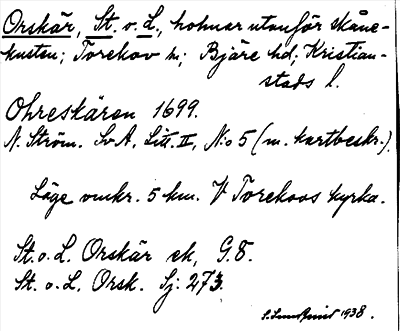 Orskär, St. o. L., holmar utanför skåne-
kusten; Torekov sn; Bjäre hd; Kristian-
stads l.
Ohreskären 1699.
N. Ström. Sv A, Litt. II, N:o 5 (m. kartbeskr.).
Läge omkr. 5 km. V Torekovs kyrka.
St. o. L. Orskär ek, G. 8.
St. o. L. Orsk. Sj. 273.
1938.